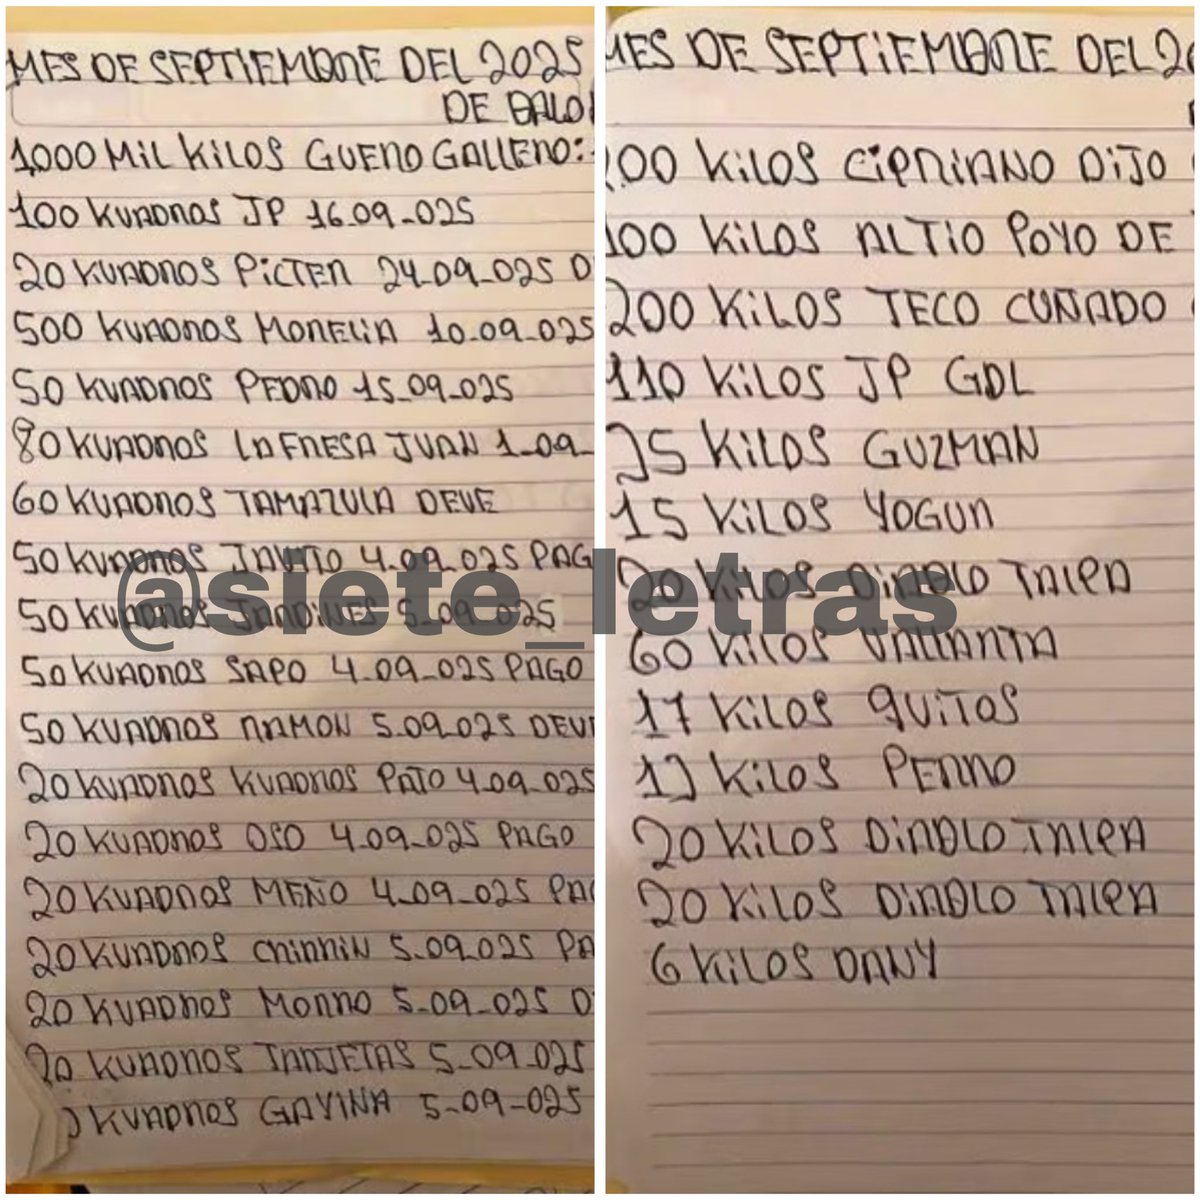 MES DE SEPTIEMBRE DEL 2025
DE BALO
1,000 MIL KILOS GUERO GALLERO:
100 KUADROS JP 16.09-025
20 KUADROS PICTER 24-09-025 D
500 KUADROS MORELIA 10-09-025
50 KUADROS PEDRO 15-09-025
80 KUADROS LA FRESA JUAN 1-09-
60 KUADROS TAMAZULA DEVE
50 KUADROS 4-09-025 PAG
50 KUADROS JARDINES 5-09-025
50 KUADROS SAPO 4-09-025 PAGO
50 KUADROS RAMON 5-09-025 DEVE
20 KUADROS KUADROS PATO 4-09-025
20 KUADROS OSO 4-09-025 PAGO
20 KUADROS MEÑO 4-09-025 PAG
20 KUADROS CHIRRIN 5-09-025 PA
20 KUADROS MORRO 5-09-025 D
20 KUADROS TARJETAS 5-09-025
KUADROS GAVINA 5-09-025
MES DE SEPTIEMBRE DEL 20
00 KILOS CIPRIANO DIJO
100 KILOS ALTIO POYO DE
200 KILOS TECO CUÑADO
110 KILOS JP GDL
KILOS GUZMAN
15 KILOS YOGUR
20 KILOS DIABLO TALPA
60 KILOS VALLARTA
17 KILOS QUITOS
KILOS PERRO
20 KILOS DIABLO TALPA
20 KILOS DIABLO TALPA
6 KILOS DANY
@siete_letras